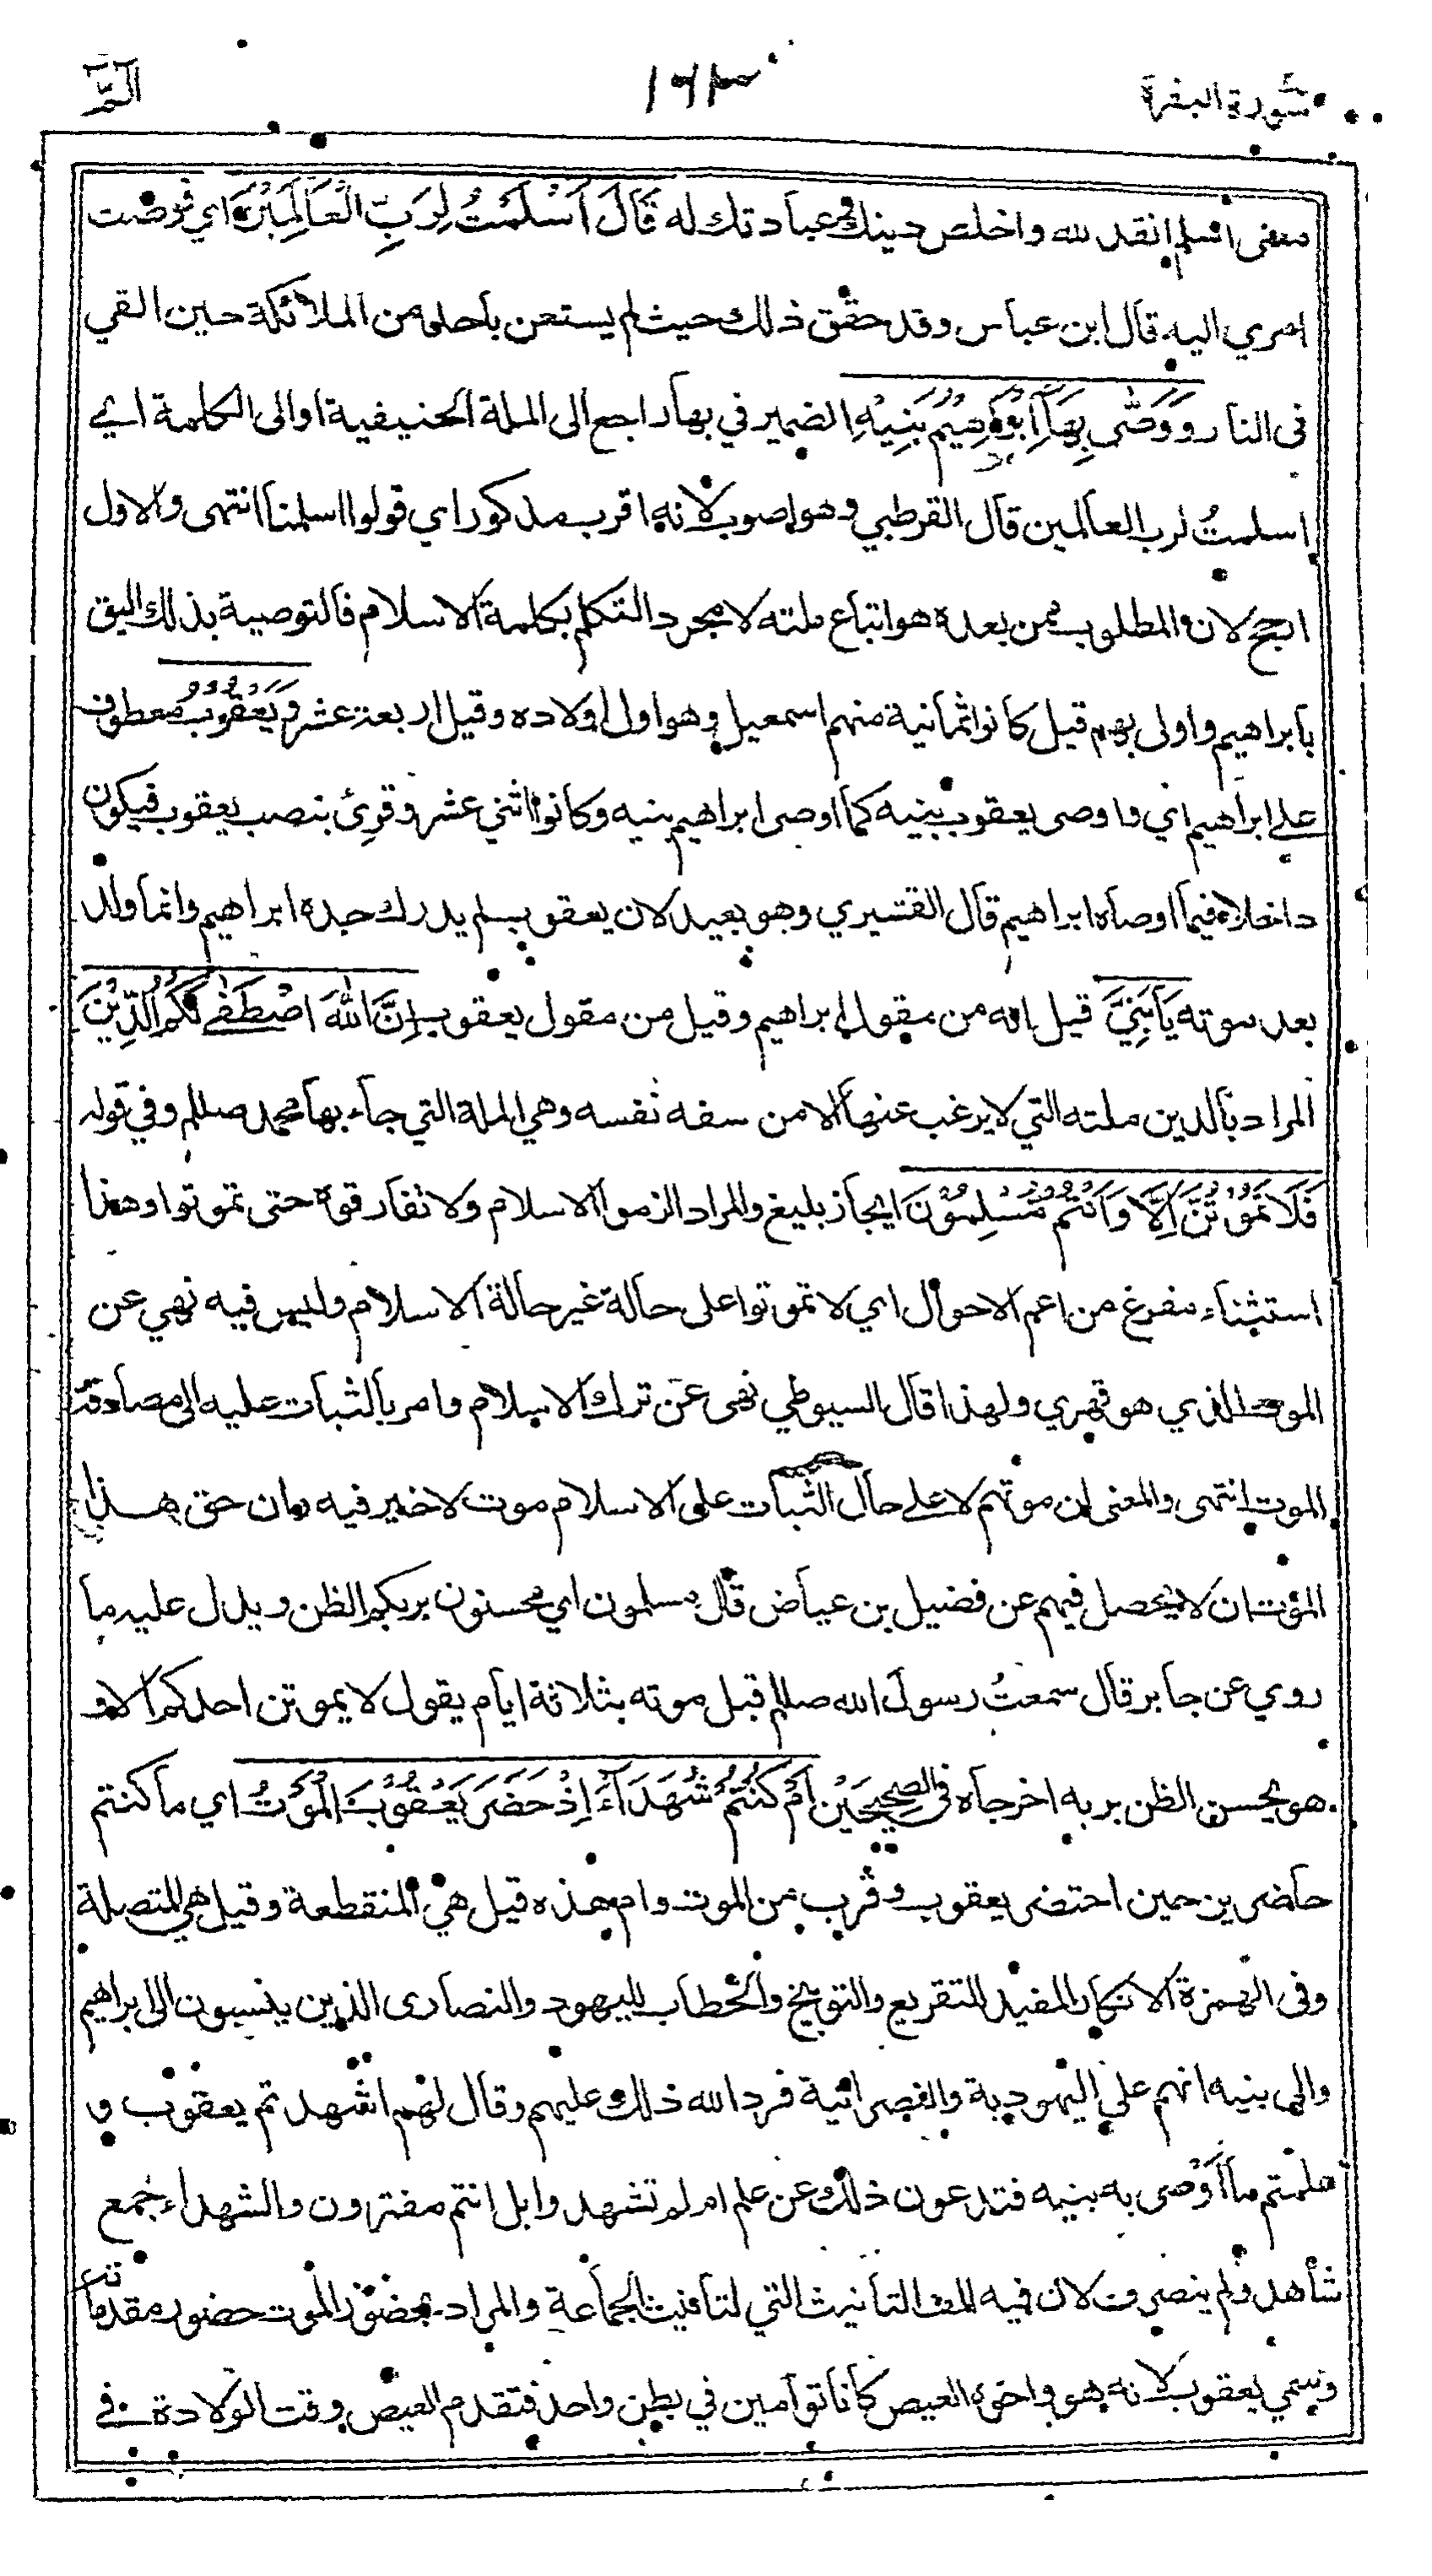 سورة البقرة ١٦٣ الٓمّٓ
معنى اسلم انقد لله واخلص دينك وعبادتك له قَالَ اَسْلَمْتُ لِرَبِّ الْعَالَمِيْنَ اي فوضت
امري اليه قال ابن عباس وقد حقق ذلك حيث لم يستعن باحد من الملائكة حين القي
في النار وَوَصّٰى بِهَآ اِبْرٰهِيْمُ بَنِيْهِ الضمير في بها راجع الى الملة الحنيفية او الى الكلمة اي
اسلمتُ لرب العالمين قال القرطبي وهو اصوب لانه اقرب مذكور اي قولوا اسلمنا انتهى والاول
ارجح لان المطلوب ممن بعده هو اتباع ملته لا مجرد التكلم بكلمة الاسلام فالتوصية بذلك اليق
بابراهيم واولى بهم قيل كانوا ثمانية منهم اسمعيل وهو اول اولاده وقيل اربعة عشر وَيَعْقُوْبُ معطوف
على ابراهيم اي واوصى يعقوب بنيه كما اوصى ابراهيم بنيه وكانوا اثني عشر وقرئ بنصب يعقوب فيكون
داخلا فيما اوصاه ابراهيم قال القشيري وهو بعيد لان يعقوب لم يدرك جده ابراهيم وانما ولد
بعد موته يَابَنِيَّ قيل انه من مقول ابراهيم وقيل من مقول يعقوب اِنَّ اللّٰهَ اصْطَفٰى لَكُمُ الدِّيْنَ
المراد بالدين ملته التي لا يرغب عنها الا من سفه نفسه وهي الملة التي جاء بها محمد صللم وفي قوله
فَلَا تَمُوْتُنَّ اِلَّا وَاَنْتُمْ مُّسْلِمُوْنَ ايجاز بليغ والمراد الزموا الاسلام ولا تفارقوه حتى تموتوا وهذا
استثناء مفرغ من اعم الاحوال اي لا تموتوا على حالة غير حالة الاسلام وليس فيه نهي عن
الموت الذي هو قهري ولهذا قال السيوطي نهى عن ترك الاسلام وامر بالثبات عليه الى مصادفة
الموت انتهى والمعنى ان موتهم لا على حال الثبات على الاسلام موت لا خير فيه وان حق هذا
الموت ان لا يحصل فيهم عن فضيل بن عياض قال مسلمون اي محسنون بربكم الظن ويدل عليه ما
روي عن جابر قال سمعتُ رسول الله صللم قبل موته بثلاثة ايام يقول لا يموتن احدكم الا و
هو يحسن الظن بربه اخرجاه في الصحيحين اَمْ كُنْتُمْ شُهَدَآءَ اِذْ حَضَرَ يَعْقُوْبَ الْمَوْتُ اي ما كنتم
حاضرين حين احتضر يعقوب وقرب من الموت وام هذه قيل هي المنقطعة وقيل هي المتصلة
وفى الهمزة الانكار المفيد للتقريع والتوبيخ والخطاب لليهود والنصارى الذين ينسبون الى ابراهيم
والى بنيه انهم على اليهودية والنصرانية فرد الله ذلك عليهم وقال لهم اشهدتم يعقوب و
علمتم ما اوصى به بنيه فتدعون ذلك عن علم ام لم تشهدوا بل انتم مفترون والشهداء جمع
شاهد ولم ينصرف لان فيه الف التانيث التي لتانيث الجماعة والمراد بحضور الموت حضور مقدماته
وسمي يعقوب لانه هو واخوه العيص كانا توأمين في بطن واحد فتقدم العيص وقت الولادة في